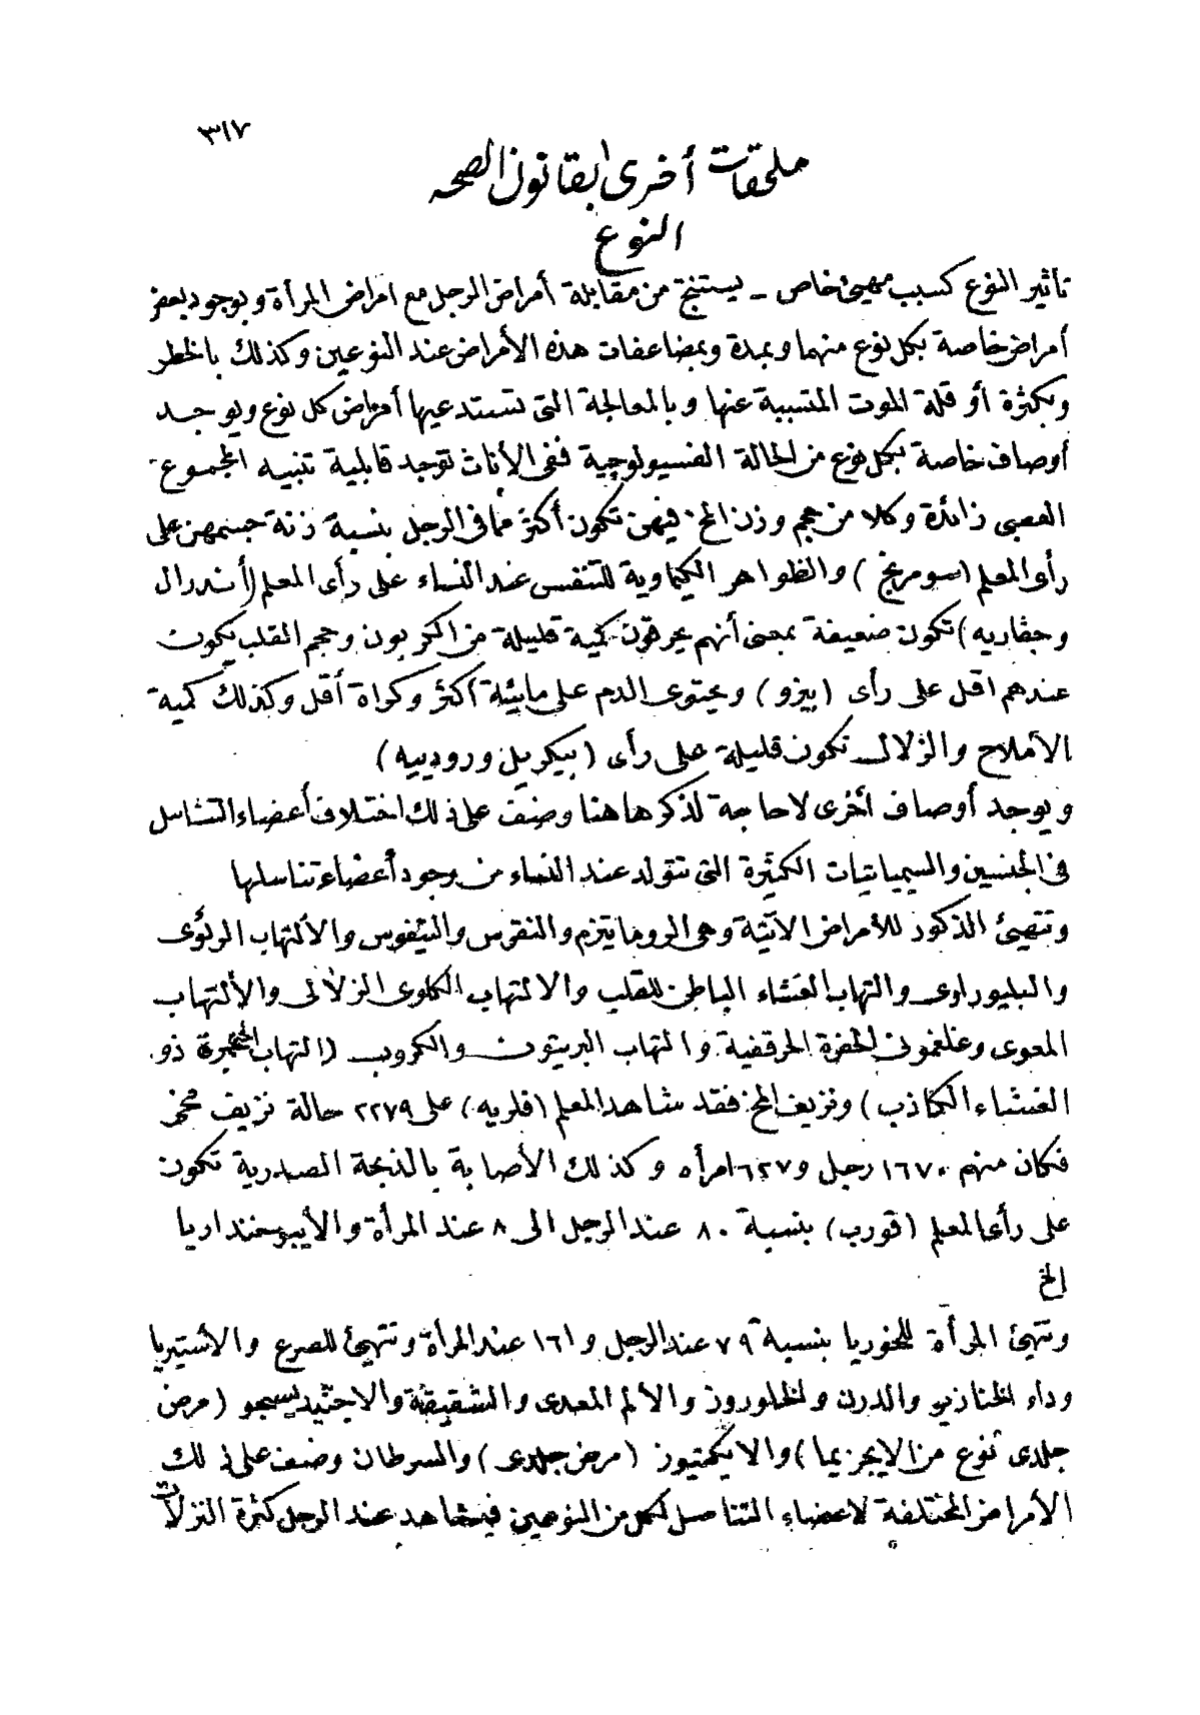 ٣١٧
ملحقات أخرى لقانون الصحه
النوع
تأثير النوع كسبب مهيئ خاص - يستنتج من مقابلة أمراض الرجل مع امراض المرأة و بوجود بعض
أمراض خاصة بكل نوع منهما و بمدة و بمضاعفات هذه الأمراض عند النوعين وكذلك بالخطر
وبكثرة أو قلة الموت المتسببة عنها و بالمعالجة التى تستدعيها أمراض كل نوع ويوجد
أوصاف خاصة بكل نوع من الحالة الفسيولوجية ففى الأناث توجد قابلية تنبيه المجموع
العصبى زائدة وكلا من حجم و وزن المخ فيهن تكون أكثر مما فى الرجل بنسبة زنة جسمهن على
رأى المعلم (سومرنج) والظواهر الكيماوية للتنفس عند النساء على رأى المعلم (أندرال
وجفاريه) تكون ضعيفة بمعنى أنهم يحرقون كمية قليلة من الكربون وحجم القلب يكون
عندهم اقل على رأى (بيزو) ويحتوى الدم على مائية أكثر وكراة أقل وكذلك كمية
الأملاح والزلال تكون قليلة على رأى (بيكريل وروديه)
ويوجد أوصاف أخرى لا حاجة لذكرها هنا وضف على ذلك اختلاف أعضاء التناسل
فى الجنسين والسيمباتيات الكثيرة التى تتولد عند النساء من وجود أعضاء تناسلها
وتتهيئ الذكور للأمراض الآتية وهى الروماتيزم والنقرس والتيفوس والألتهاب الرئوى
والبليوراوى والتهاب الغشاء الباطن للقلب والالتهاب الكلوى الزلالى والألتهاب
المعوى وغلغمونى الحفرة الحرقفية والتهاب البريتون والكروب (التهاب الحنجرة ذو
الغشاء الكاذب) ونزيف المخ فقد شاهد المعلم (فلريه) على ٢٢٧٩ حالة نزيف مخى
فكان منهم ١٦٧٠ رجل و ٦٢٧ امرأه وكذلك الأصابة بالذبحة الصدرية تكون
على رأى المعلم (فورب) بنسبة ٨٠ عند الرجل الى ٨ عند المرأة والأيبوخنداريا
الخ
وتتهيئ المرأة للخوريا بنسبة ٧٩ عند الرجل و ١٦١ عند المرأة وتتهيئ للصرع والأستيريا
وداء الخنازير والدرن والخلوروز والألم المعدى والشقيقة والاجتيديسيجو (مرض
جلدى نوع من الايجزيما) والايكتيوز (مرض جلدى) والسرطان وضف على ذلك
الأمراض المختلفة لاعضاء التناسل لكل من النوعين فيشاهد عند الرجل كثرة النزلات